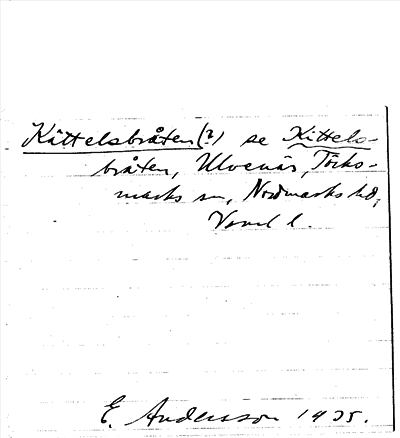 Kättelsbråten(?) se Kittels-
bråten, Ulvenäs, Töcks-
marks sn, Nordmarks hd,
Värml l.
E. Andersson 1925.